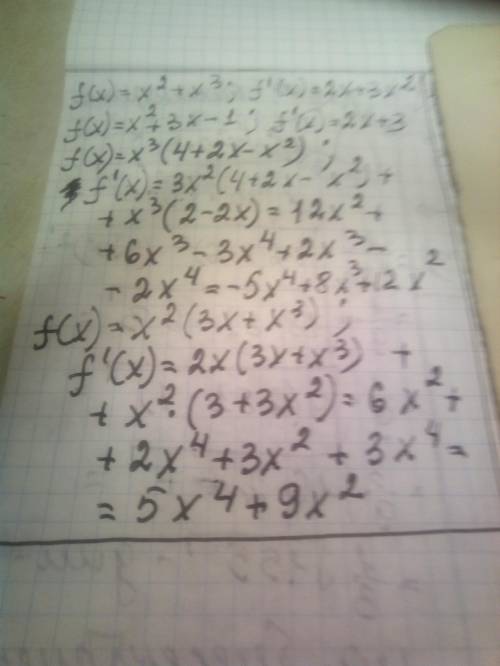 f(x)=x²+x³; f'(x)=2x+3x²
f(x)=x²+3x-1; f'(x)=2x+3
f(x)=x³(4+2x-x²);
f'(x)=3x²(4+2x-x²)+
+x³(2-2x)=12x²+
+6x³-3x⁴+2x³-
-2x⁴=-5x⁴+8x³+12x²
f(x)=x²(3x+x³);
f'(x)=2x(3x+x³)+
+x²·(3+3x²)=6x²+
+2x⁴+3x²+3x⁴=
=5x⁴+9x²